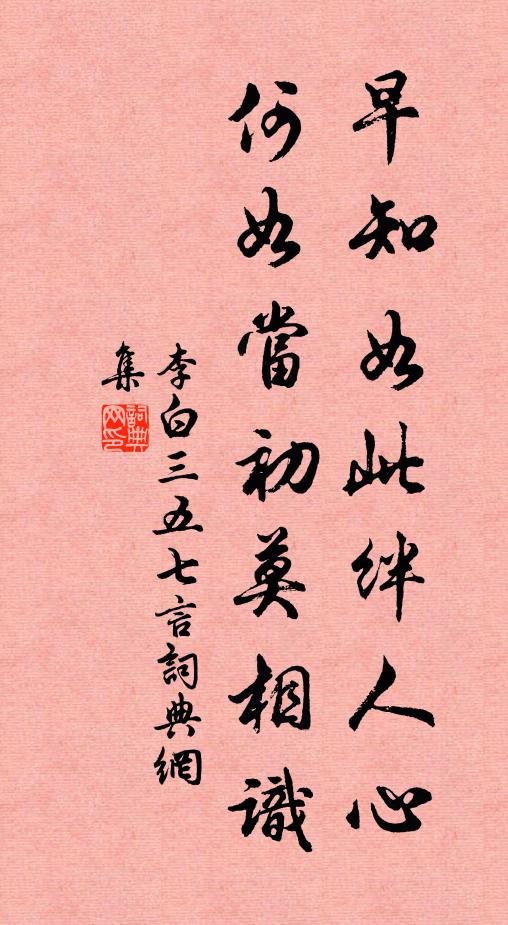 早知如此絆人心
何如當初莫相識
李白三五七言詞典網
集
詞典網印